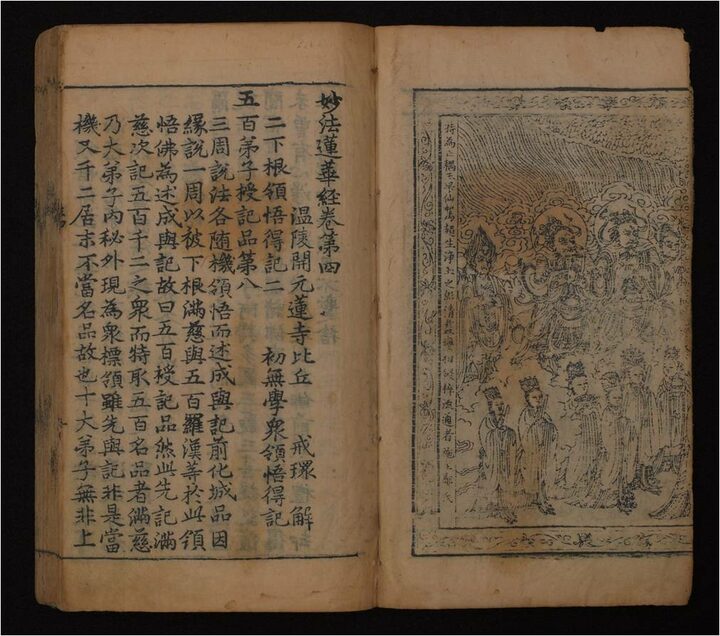 特為 仙駕 生淨土之
妙法蓮華経卷第四
温陵開元蓮寺比丘 戒環解
二下根領悟得記二 初無學衆領悟得記
五百弟子授記品第八
三周說法各随機領悟而述成與記前化城品因
緣說一周以被下根滿慈與五百羅漢等於此領
悟佛為述成與記故曰五百授記品然此先記滿
慈次記五百千二之衆而特取五百名品者滿慈
乃大弟子内秘外現為衆標領雖先與記非是當
機又千二居末不當名品故也十大弟子無非上